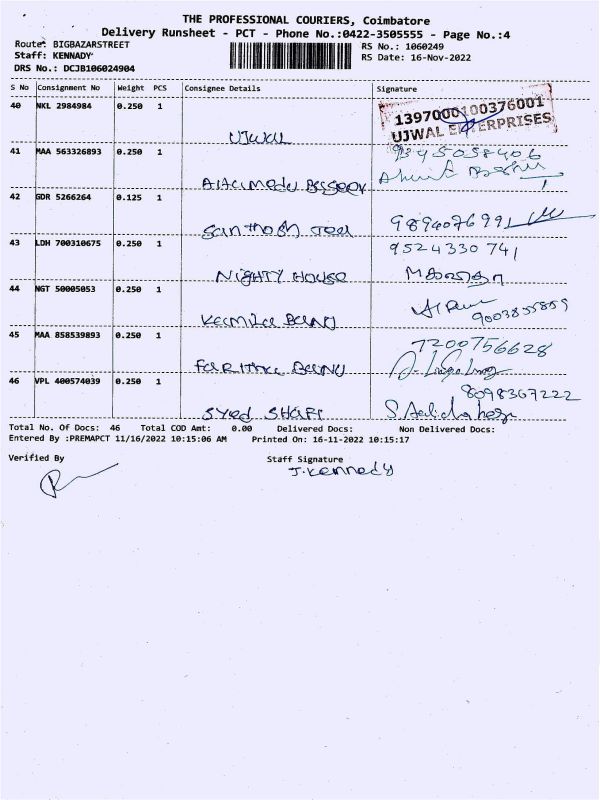 THE PROFESSIONAL COURIERS, Coimbatore
Delivery Runsheet - PCT - Phone No.:0422-3505555 - Page No.:4
Route: BIGBAZARSTREET
RS No.: 1060249
Staff: KENNADY
RS Date: 16-Nov-2022
DRS No.: DCJB106024904
S No Consignment No Weight PCS Consignee Details Signature
40 NKL 2984984 0.250 1
1397000100376001
UJWAL ENTERPRISES
UJWAL
41 MAA 563326893 0.250 1
9345058406
42 GDR 5266264 0.125 1
Santhosh Steel
9894076991
43 LDH 700310675 0.250 1
9524330741
NIGHTY HOUSE
44 NGT 50005053 0.250 1
9003855859
Banu
45 MAA 858539893 0.250 1
7200756628
FARITHA Banu
46 VPL 400574039 0.250 1
8098367222
Syed SHAFI
Total No. Of Docs: 46 Total COD Amt: 0.00 Delivered Docs: Non Delivered Docs:
Entered By :PREMAPCT 11/16/2022 10:15:06 AM Printed On: 16-11-2022 10:15:17
Verified By
Staff Signature
J. Kennedy